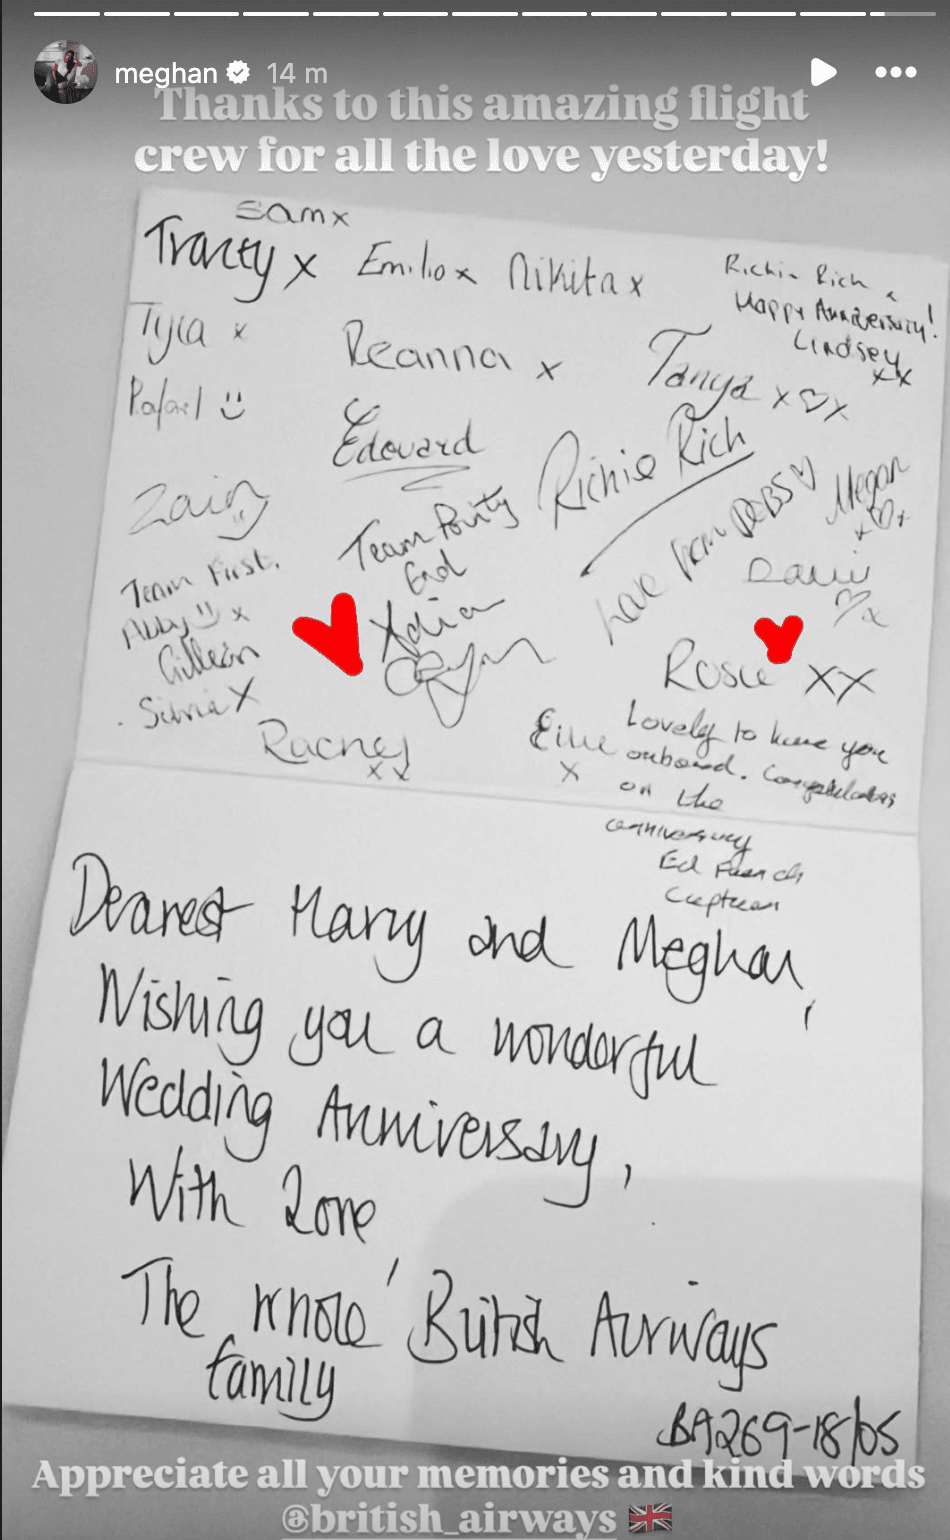 meghan 14 m
Thanks to this amazing flight
crew for all the love yesterday!
Sam x
Tracey x Emilio x Nikita x
Richie Rich x
Happy Anniversary!
Lindsey
xx
Tyla x
Reanna x
Tanya x♡x
Rafael
Edouard
Richie Rich
Zain
Team Purity
Love from DEBS ♡
Megan
x♡x
♡x
Team First.
Abby x
Gillean
Silvia X
Rosie XX
Racney
xx
Ellie
x
Lovely to have you
onboard. Congratulations
on the
anniversary
Ed French
Captain
Dearest Harry and Meghan,
Wishing you a wonderful
Wedding Anniversary,
With Love
The whole British Airways
family
BA269-18/05
Appreciate all your memories and kind words
@british_airways 🇬🇧